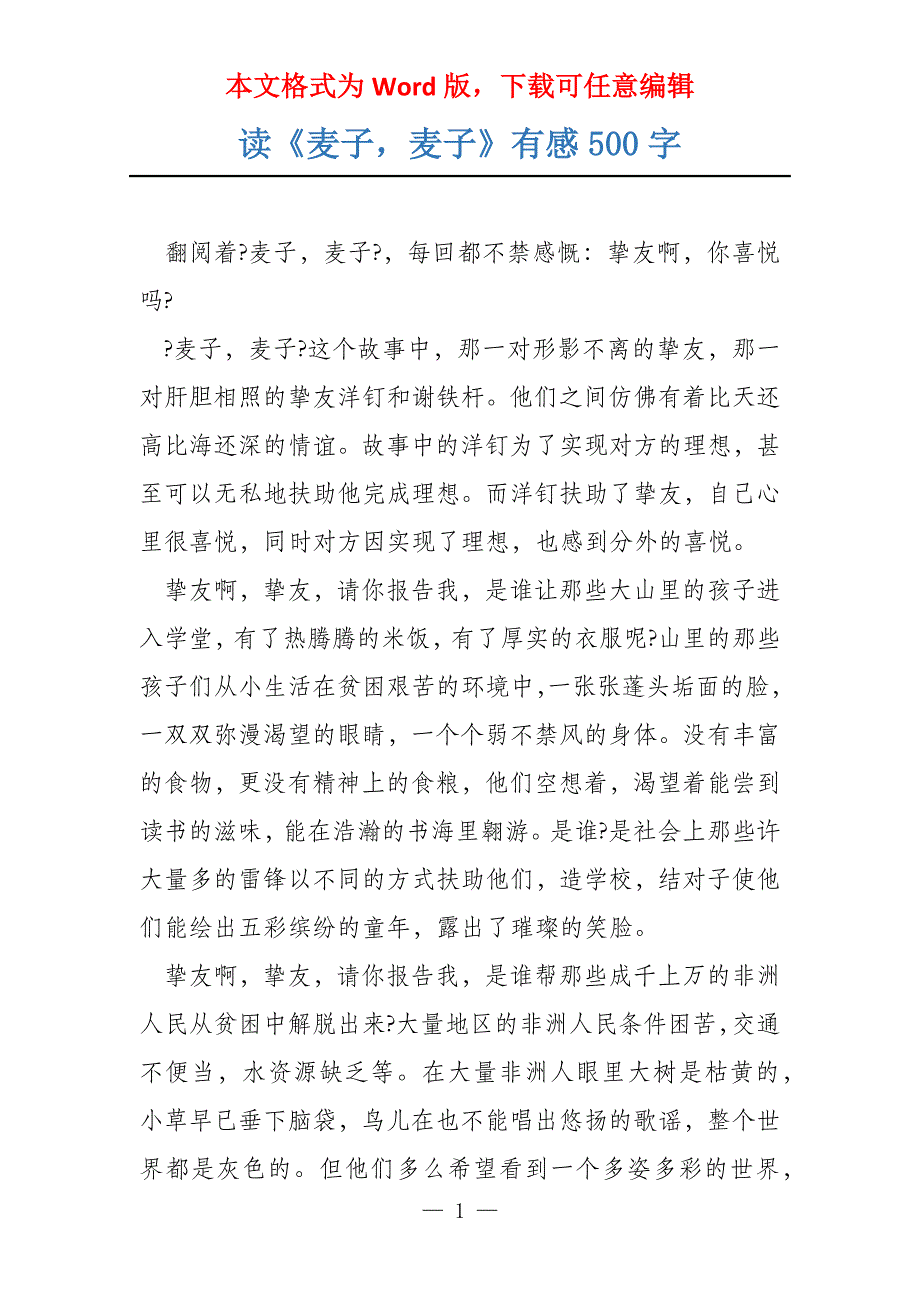 本文格式为 Word 版，下载可任意编辑
读《麦子，麦子》有感 500 字
翻阅着?麦子，麦子?，每回都不禁感慨：挚友啊，你喜悦
吗?
?麦子，麦子?这个故事中，那一对形影不离的挚友，那一
对肝胆相照的挚友洋钉和谢铁杆。他们之间仿佛有着比天还
高比海还深的情谊。故事中的洋钉为了实现对方的理想，甚
至可以无私地扶助他完成理想。而洋钉扶助了挚友，自己心
里很喜悦，同时对方因实现了理想，也感到分外的喜悦。
挚友啊，挚友，请你报告我，是谁让那些大山里的孩子进
入学堂，有了热腾腾的米饭，有了厚实的衣服呢?山里的那些
孩子们从小生活在贫困艰苦的环境中，一张张蓬头垢面的脸，
一双双弥漫渴望的眼睛，一个个弱不禁风的身体。没有丰富
的食物，更没有精神上的食粮，他们空想着，渴望着能尝到
读书的滋味，能在浩瀚的书海里翱游。是谁?是社会上那些许
大量多的雷锋以不同的方式扶助他们，造学校，结对子使他
们能绘出五彩缤纷的童年，露出了璀璨的笑脸。
挚友啊，挚友，请你报告我，是谁帮那些成千上万的非洲
人民从贫困中解脱出来?大量地区的非洲人民条件困苦，交通
不便当，水资源缺乏等。在大量非洲人眼里大树是枯黄的，
小草早已垂下脑袋，鸟儿在也不能唱出悠扬的歌谣，整个世
界都是灰色的。但他们多么希望看到一个多姿多彩的世界，
— 1 —